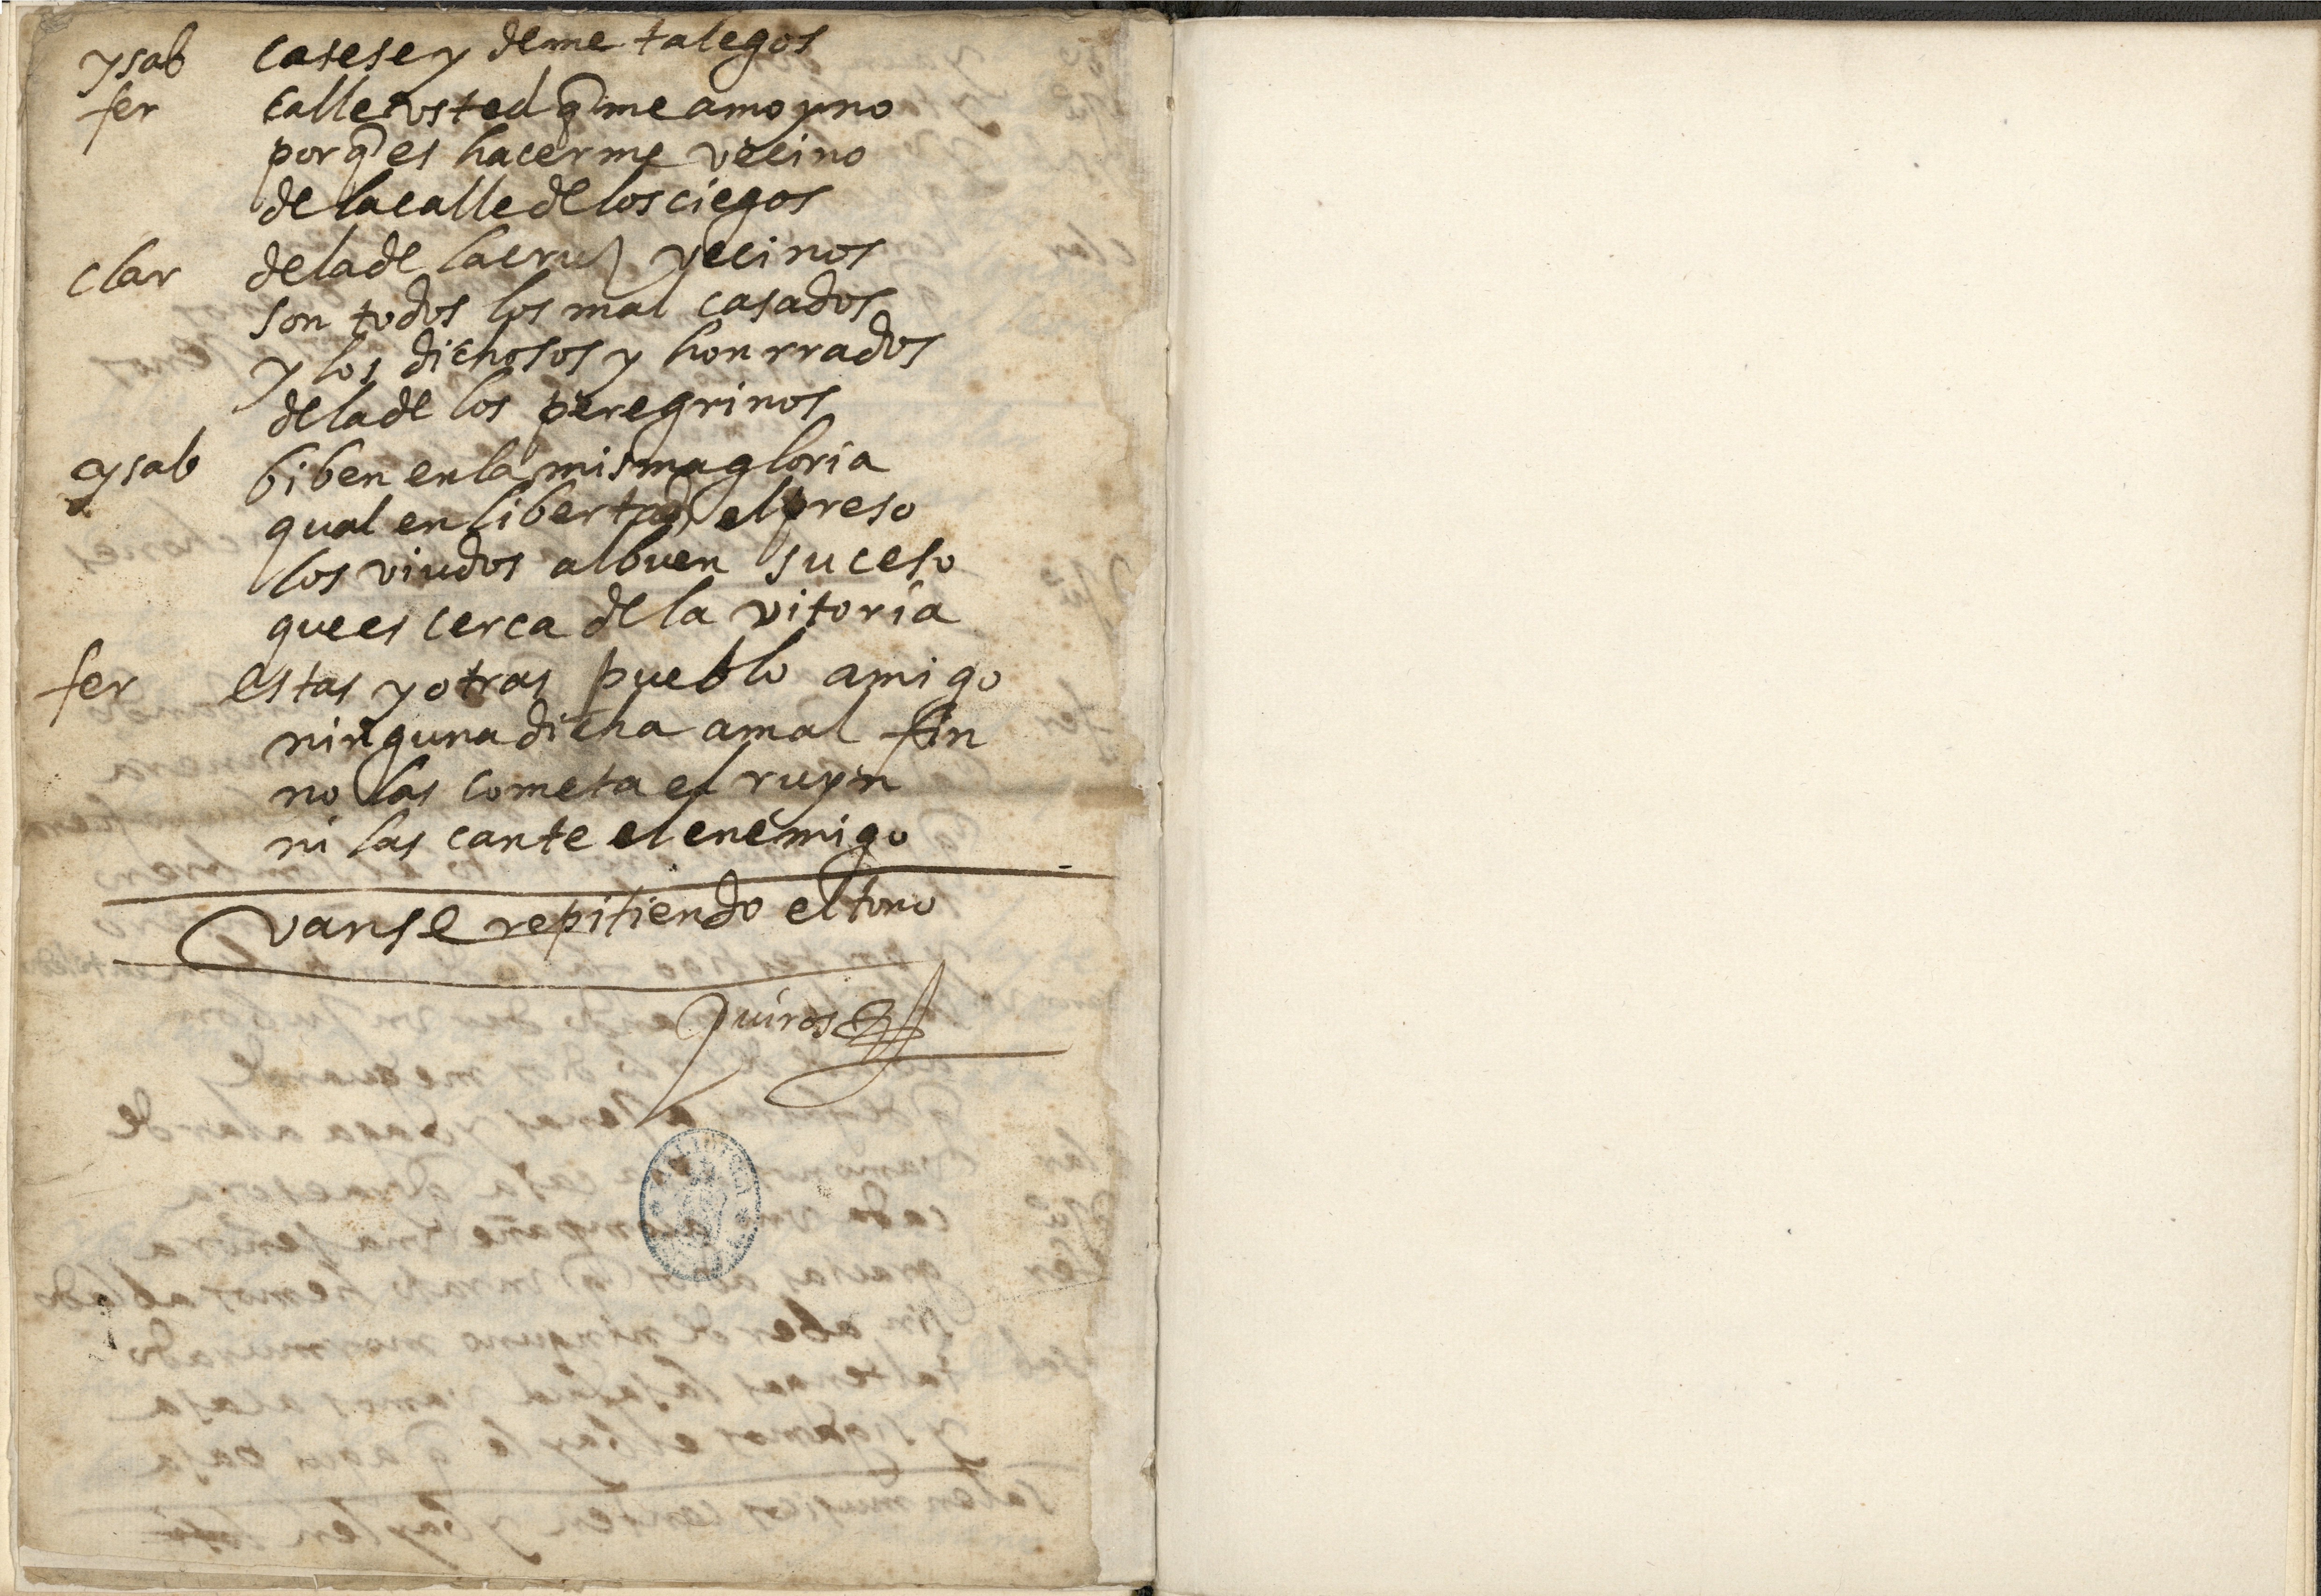 ysab casese y deme talegos
fer calle vsted q̃ me amoyno
porq̃ es hacerme vecino
de la calle de los ciegos
clar de la de la cruz vecinos
son todos los mal casados
y los dichosos y honrrados
de la de los peregrinos
ysab biben en la misma gloria
qual en libertad el preso
los viudos al buen suceso
que es cerca de la vitoria
fer estas y otras pueblo amigo
ninguna dicha a mal fin
no las cometa el ruyn
ni las cante el enemigo
vanse repitiendo el tono
Quiros